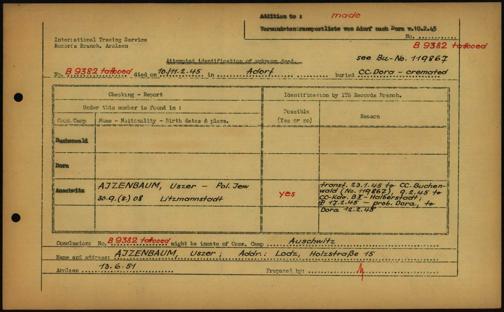 Addition to : made
Verwundetentransportliste von Adorf nach Dora v.10.2.45
No.
B 9382 tattooed
International Tracing Service
Records Branch, Arolsen
see Bu-No. 119867
Attempted identification of unknown dead.
No. B 9382 tattooed died on 10/11.2.45 in Adorf buried CC.Dora - cremated
Checking - Report
Identification by ITS Records Branch.
Under this number is found in :
Possible (Yes or no)
Reason
Conc.Camp
Name - Nationality - Birth dates & place.
Buchenwald
Dora
Auschwitz
AJZENBAUM, Uszer - Pol. Jew
30.9.(8.) 08 Litzmannstadt
yes
transf. 23.1.45 to CC. Buchen-
wald (No. 119867), 9.2.45 to
CC-Kdo. B II - Halberstadt;
Dora 12.2.45
Conclusion: No. B 9382 tattooed might be inmate of Conc. Camp Auschwitz
Name and address: AJZENBAUM, Uszer ; Addr.: Lodz, Holzstraße 15
Arolsen 13.6.51 Prepared by: